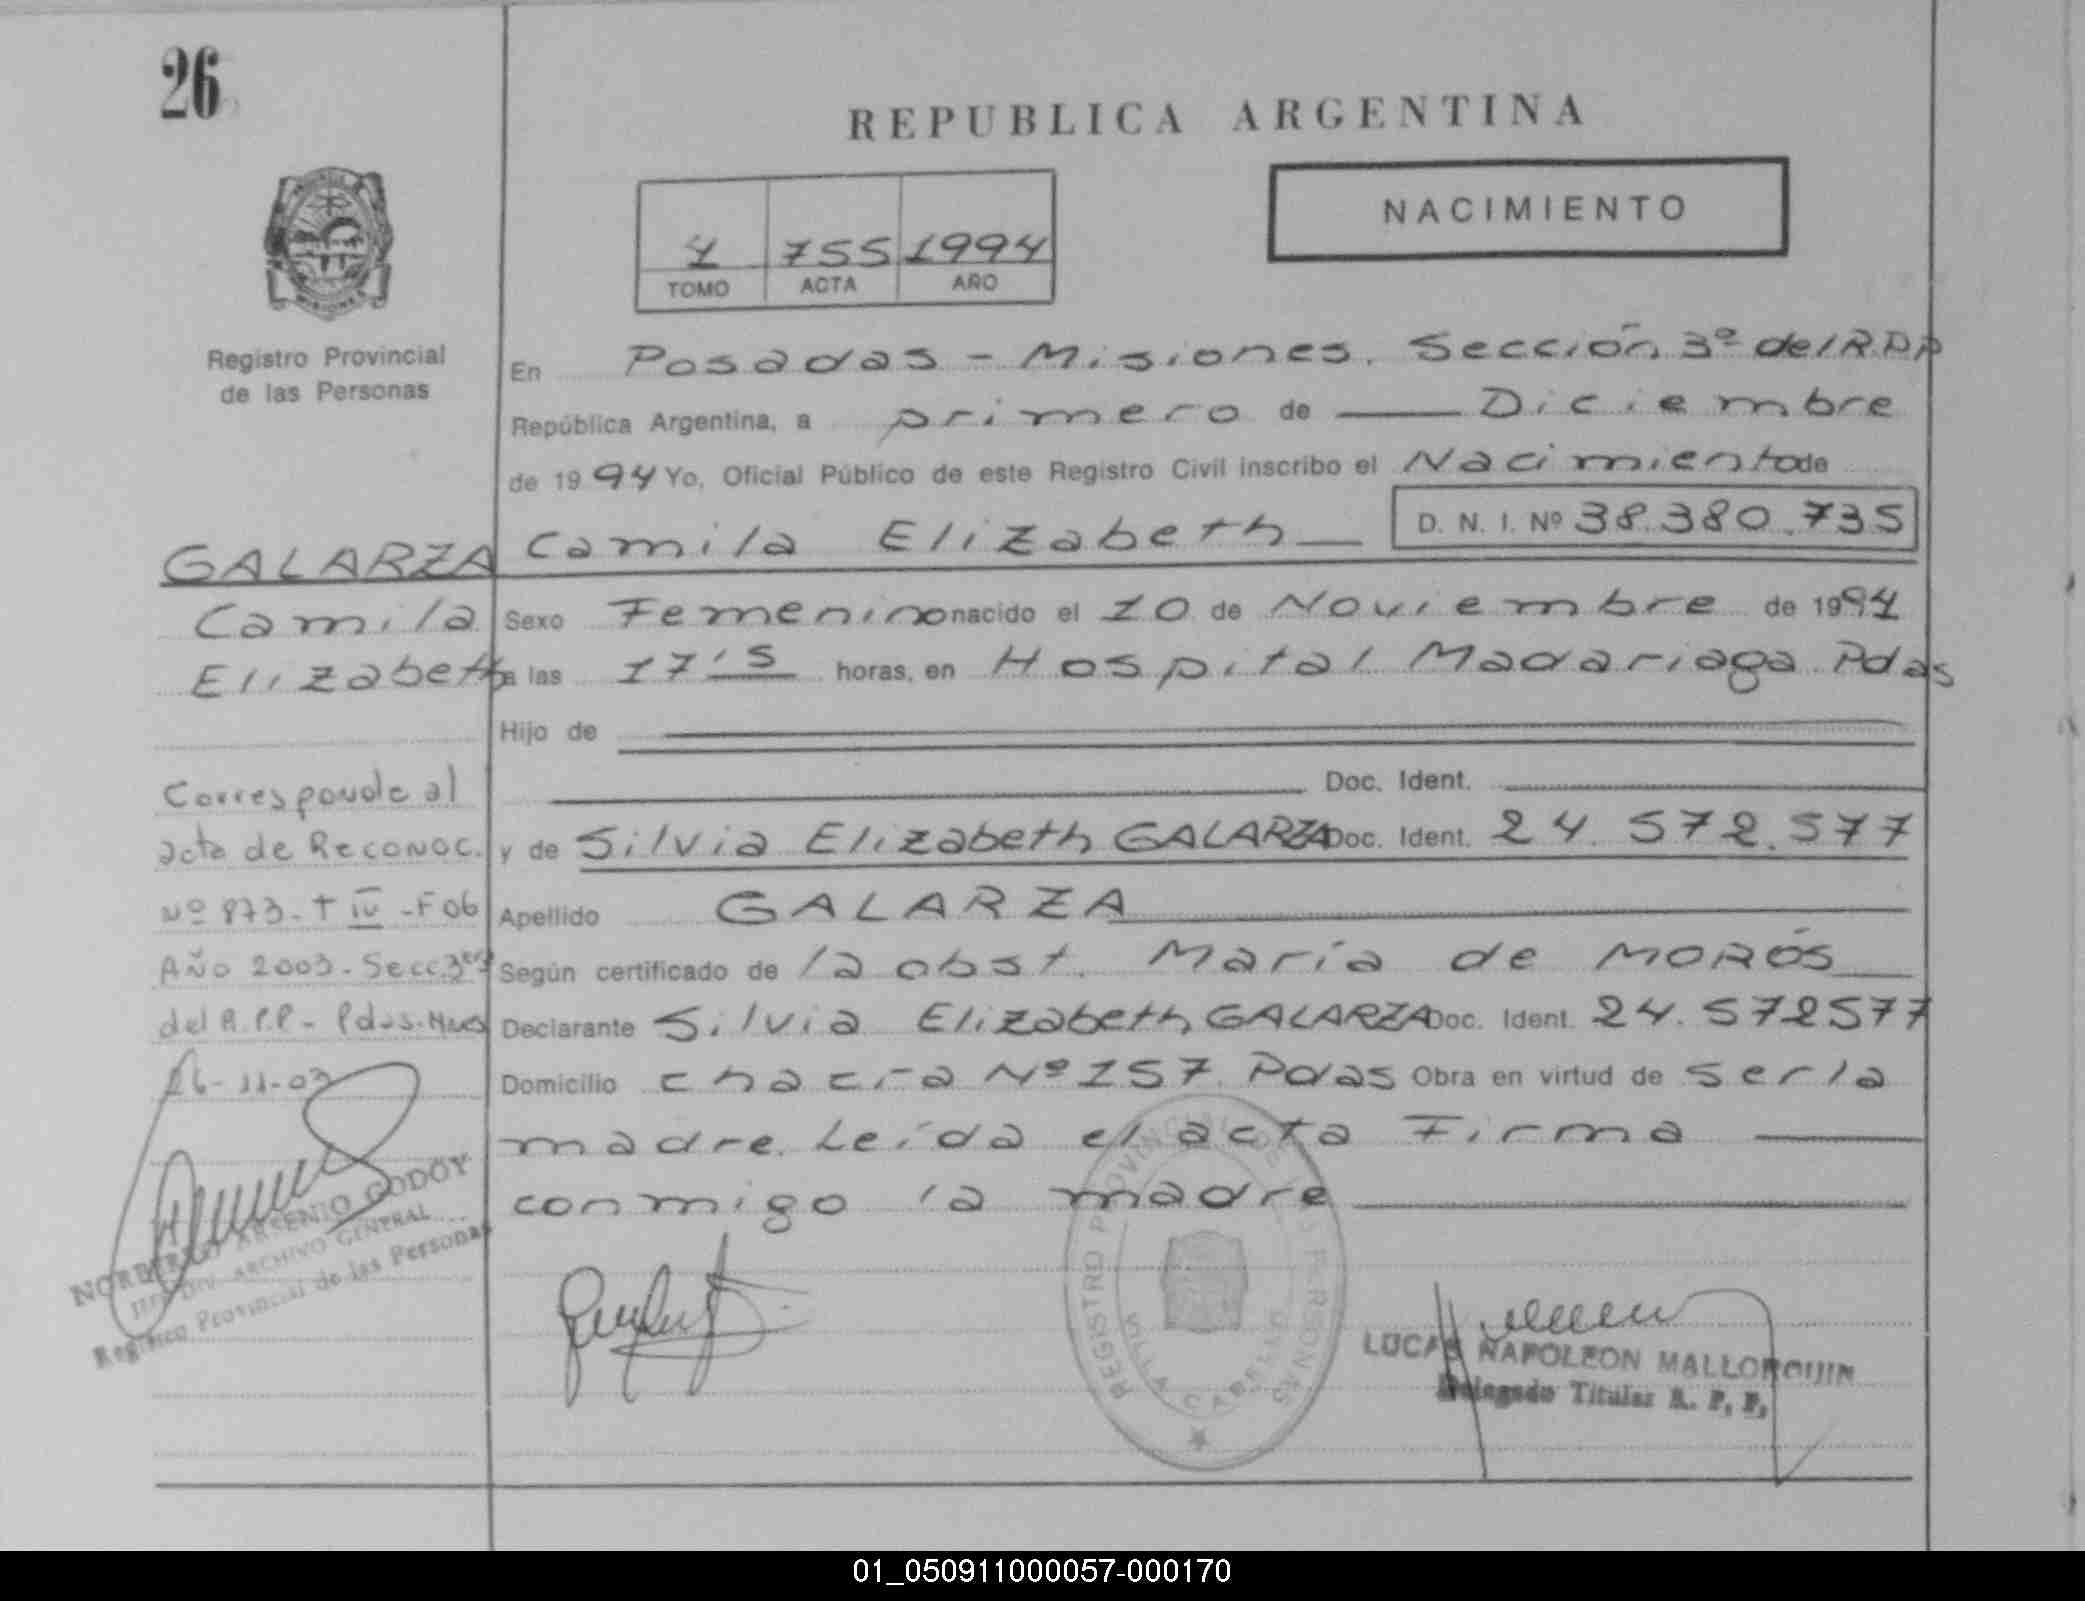 26
REPUBLICA ARGENTINA
NACIMIENTO
755 1994
TOMO ACTA AÑO
MISIONES
Registro Provincial
de las Personas
En Posadas - Misiones. Sección 3º del R.P.P
República Argentina, a primero de Diciembre
de 1994 Yo, Oficial Público de este Registro Civil inscribo el Nacimiento de
Camila Elizabeth D. N. I. Nº 38.380.735
GALARZA
Camila
Elizabeth
Sexo Femenino nacido el 10 de Noviembre de 1994
a las 17'5 horas, en Hospital Madariaga Pdas
Hijo de
Doc. Ident.
y de Silvia Elizabeth GALARZA Doc. Ident. 24.572.577
Apellido GALARZA
Según certificado de la obst. María de MORÓS
Declarante Silvia Elizabeth GALARZA Doc. Ident. 24.572577
Domicilio chacra Nº 157 Pdas Obra en virtud de ser la
madre. Leída el acta Firma
conmigo la madre
Corresponde al
acta de Reconoc.
Nº 873 - T IV - F 06
Año 2003 - Secc. 3
del R.P.P - Pdas. Mnes
26-11-03
NORBERTO ARSENIO GODOY
ARCHIVO GENERAL
Registro Provincial de las Personas
REGISTRO PROVINCIAL DE LAS PERSONAS
VILLA CABELLO
LUCAS NAPOLEON MALLORQUIN
Delegado Titular R. P. P.
01_050911000057-000170